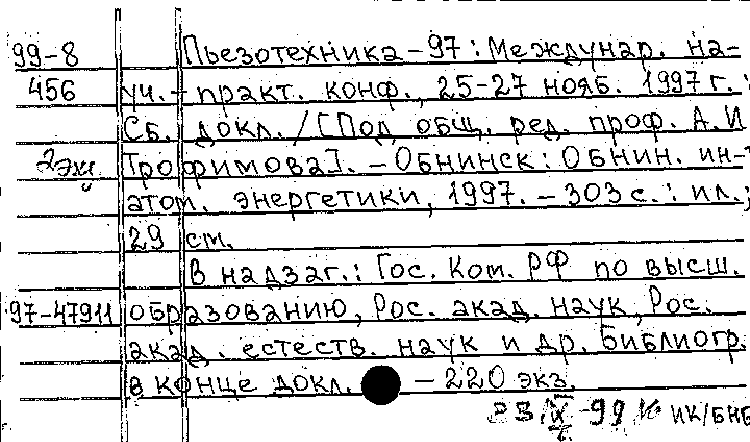 99-8 Пьезотехника-97: Междунар. на-
456 уч.-практ. конф., 25-27 нояб. 1997 г.:
Сб. докл. / [Под общ. ред. проф. А.И
2 экз Трофимова]. - Обнинск: Обнин. ин-т
атом. энергетики, 1997. - 303 с.: ил.;
29 см.
В надзаг.: Гос. Ком. РФ по высш.
97-47911 образованию, Рос. акад. наук, Рос.
акад. естеств. наук и др. Библиогр.
в конце докл. - 220 экз.
99 ИК/БНБ